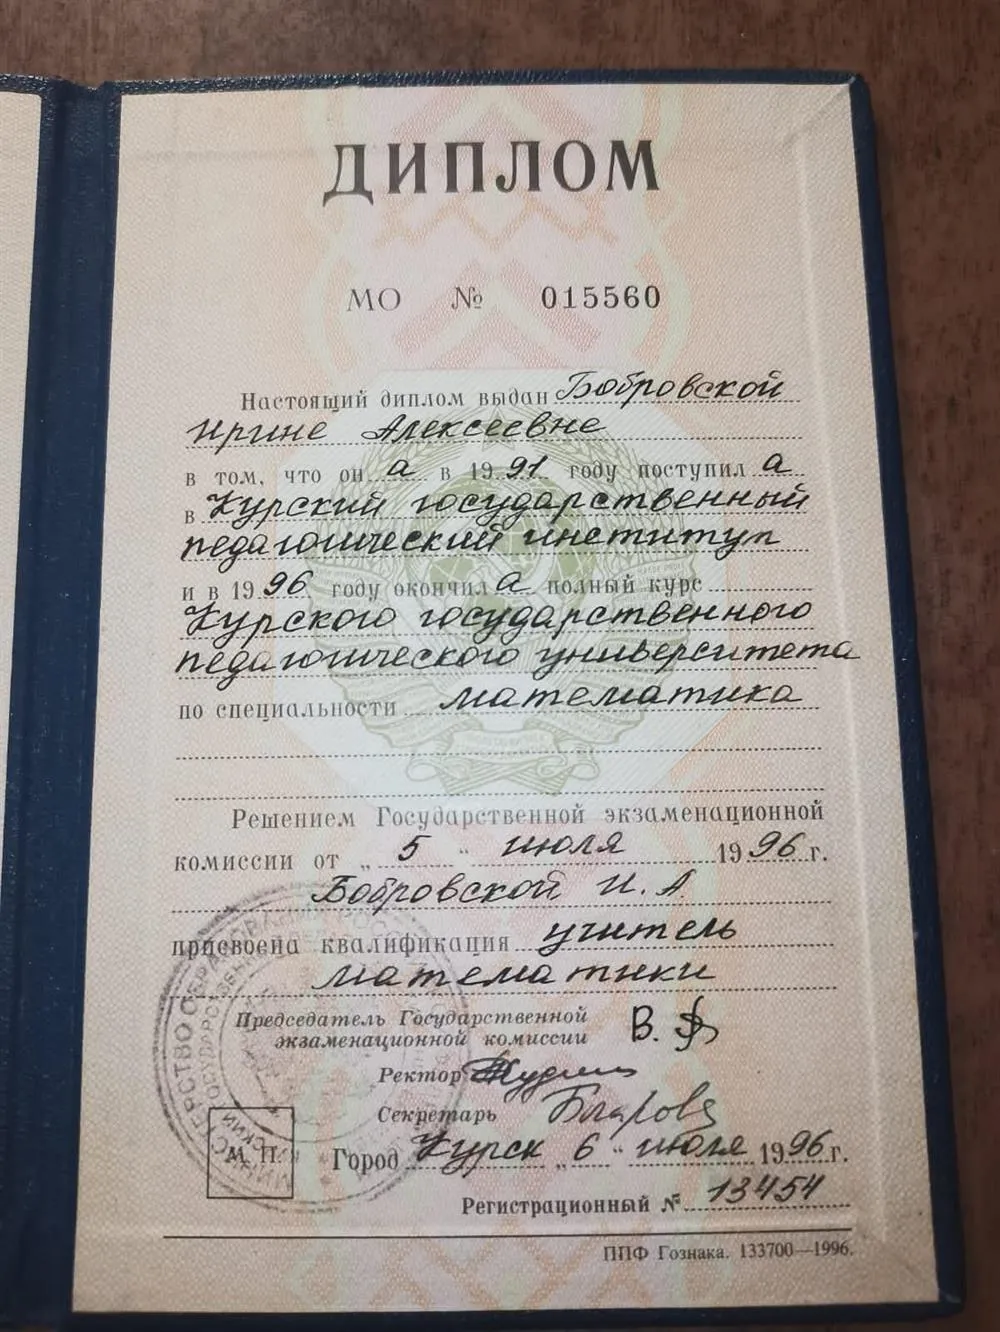 ДИПЛОМ
МО № 015560
Настоящий диплом выдан Бобровской
Ирине Алексеевне
в том, что он а в 1991 году поступил а
в Курский государственный
педагогический институт
и в 1996 году окончил а полный курс
Курского государственного
педагогического университета
по специальности математика
Решением Государственной экзаменационной
комиссии от „5" июля 1996 г.
Бобровской И. А.
присвоена квалификация учитель
математики
Председатель Государственной
экзаменационной комиссии
Ректор
Секретарь
М. П.
Город Курск „6" июля 1996 г.
Регистрационный № 13454
ППФ Гознака. 133700—1996.